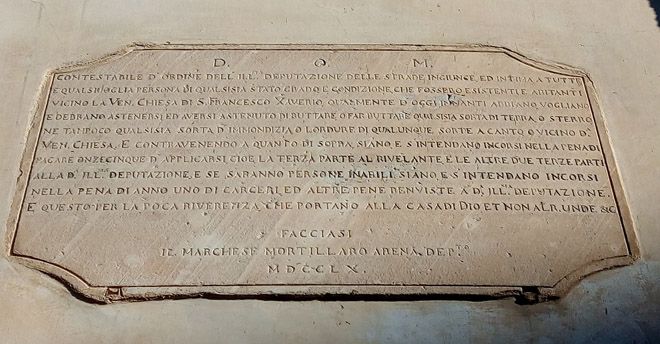 D. O. M.
CONTESTABILE D'ORDINE DELL'ILL.E DEPUTAZIONE DELLE STRADE INGIUNGE, ED INTIMA A TUTTE
E QUALSIVOGLIA PERSONA DI QUALSISIA STATO GRADO E CONDIZIONE, CHE FOSSERO ESISTENTI, E ABITANTI
VICINO LA VEN. CHIESA DI S. FRANCESCO XAVERIO, QUALMENTE D'OGGI INNANTI ABBIANO, VOGLIANO
E DEBBANO ASTENERSI ED AVERSI ASTENUTO DI BUTTARE O FAR BUTTARE QUALSISIA SORTA DI TERRA, O STERRO
NE TAMPOCO QUALSISIA SORTA D'IMMONDIZIA O LORDURE DI QUALUNQUE SORTE A CANTO, O VICINO D.A
VEN. CHIESA, E CONTRAVENENDO A QUANTO DI SOPRA, SIANO, E S'INTENDANO INCORSI NELLA PENA DI
PAGARE ONZE CINQUE D'APPLICARSI CIOE LA TERZA PARTE AL RIVELANTE, E LE ALTRE DUE TERZE PARTI
ALLA D.A ILL.E DEPUTAZIONE, E SE SARANNO PERSONE INABILI SIANO, E S'INTENDANO INCORSI
NELLA PENA DI ANNO UNO DI CARCERI, ED ALTRE PENE BENVISTE A D.A ILL.E DEPUTAZIONE.
E QUESTO PER LA POCA RIVERENZA, CHE PORTANO ALLA CASA DI DIO ET NON ALR. UNDE &C
FACCIASI
IL MARCHESE MORTILLARO ARENA DEP.TO
MDCCLX.